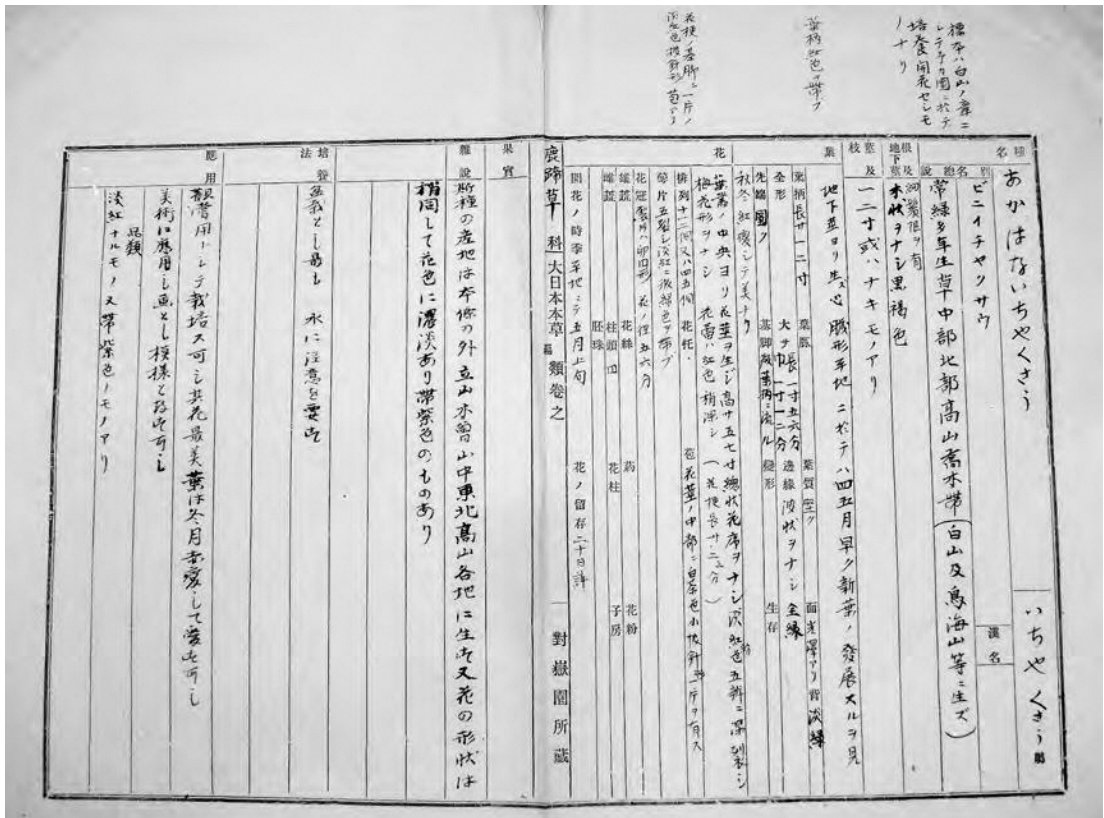 標本ハ白山ノ産ニ
シテ予カ園ニ於テ
培養開花セシモ
ノナリ
葉柄紅色ヲ帯フ
花梗ノ基脚ニ一片ノ
淡紅色披針形苞アリ
種名
あかばないちやくさう
いちやくさう 屬
別名
ビニイチヤクサウ
漢名
總説
常緑多年生草中部北部高山喬木帶(白山及鳥海山等ニ生ズ)
根及地下莖
細鬚根ヲ有
木状ヲナシ黒褐色
莖及枝
一二寸或ハナキモノアリ
葉
地下莖ヨリ生ズ心臓形平地ニ於テハ四五月早ク新葉ノ發展スルヲ見
葉柄 長サ一二寸 葉脈 葉質 堅ク 面光澤アリ背淡緑
全形 大ナ長一寸五六分巾一寸一二分 邊緣 波状ヲナシ 全縁
先端 圓ク 基脚 葉柄ニ流ル 變形 生存
秋冬紅變シテ美ナリ
花
葉叢ノ中央ヨリ花莖ヲ生ジ高サ五七寸總状花序ヲナシ淡紅色五瓣ニ深裂シ
梅花形ヲナシ 花蕾ハ紅色稍深シ (花梗長サ二三分)
排列 十二個又ハ四五個 花托、 苞 花莖ノ中部ニ白茶色小披針形一片ヲ有ス
萼 片五裂シ淡紅ニ微緑色ヲ帶ブ
花冠 裂片ハ卵円形 花ノ径五六分
雄蕊 花絲 葯 花粉
雌蕊 柱頭 花柱 子房
胚珠
開花ノ時季 平地ニテ五月上旬 花ノ留存 二十日許
鹿蹄草 科 大日本本草 篇 類卷之 對嶽園所藏
果實
雜説
斯種の産地は本條の外立山木曽山中東北高山各地に生す又花の形状は
稍同して花色に濃淡あり帯紫色のものあり
培養法
盆栽とし易し 水に注意を要す
應用
觀賞用トシテ栽培ス可シ其花最美葉は冬月赤変して愛す可し
美術に應用し画とし模様と為す可し
品類
淡紅ナルモノ又帶紫色ノモノアリ